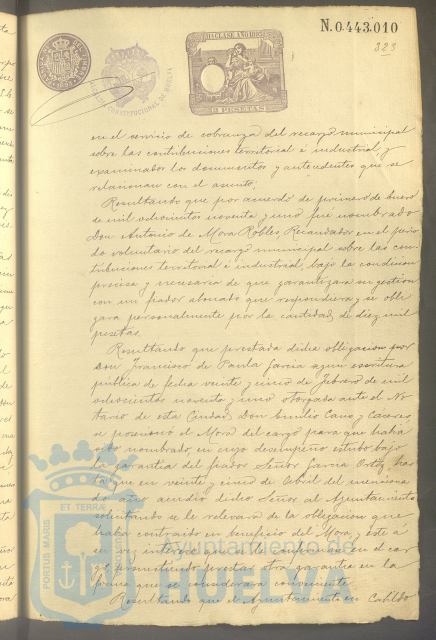 11ª CLASE AÑO 1895
N.0.443.010
323
2 PESETAS
en el servicio de cobranza del recargo municipal
sobre las contribuciones territorial é industrial y
examinados los documentos y antecedentes que se
relacionan con el asunto.
Resultando que por acuerdo de primero de Enero
de mil ochocientos noventa y uno fué nombrado
Don Antonio de Mora Robles Recaudador en el perio
do voluntario del recargo municipal sobre las con
tribuciones territorial é industrial, bajo la condicion
precisa y necesaria de que garantizara su gestion
con un fiador abonado que respondiera y se obli
gara personalmente por la cantidad de diez mil
pesetas.
Resultando que prestada dicha obligacion por
Don Francisco de Paula Garcia segun escritura
publica de fecha veinte y cinco de Febrero de mil
ochocientos noventa y uno otorgada ante el No
tario de esta Ciudad Don Emilio Cano y Caceres
se posesionó el Mora del cargo para que habia
sido nombrado, en cuyo desempeño estubo bajo
la garantia del fiador Señor Garcia Ortiz, has
ta que en veinte y cinco de Abril del menciona
do año acudió dicho Señor al Ayuntamiento
solicitando se le relevara de la obligacion que
habia contraido en beneficio del Mora, y este á
su vez interesó se le confirmase en el car
go prometiendo prestar otra garantia en la
forma que se considerara conveniente.
Resultando que el Ayuntamiento en Cabildo
PORTUS MARIS ET TERRAE
Ayuntamiento de
HUELVA